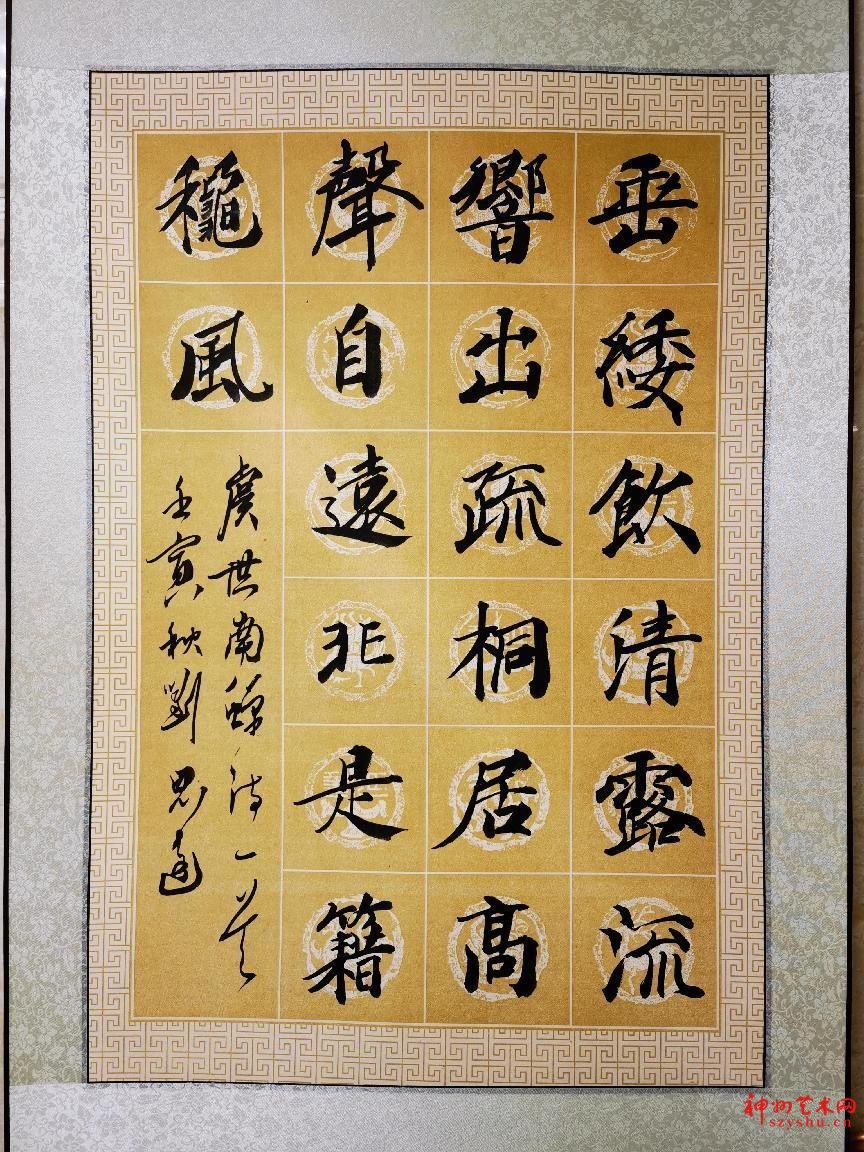 垂緌飲清露流
響出疏桐居高
聲自遠非是籍
龝風
虞世南蟬詩一首
壬寅秋劉思達
神州艺术网
szyshu.cn